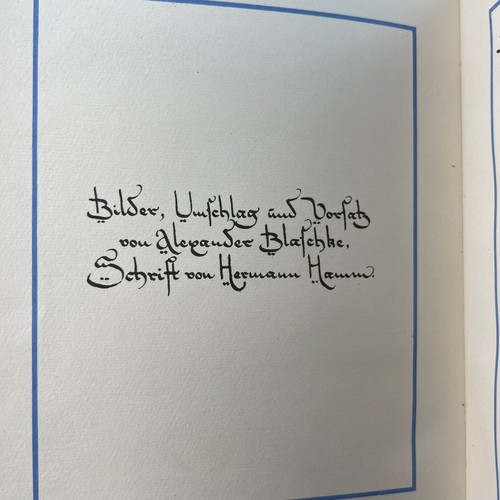 Bilder, Umschlag und Vorsatz
von Alexander Blaschke,
Schrift von Hermann Hamm.